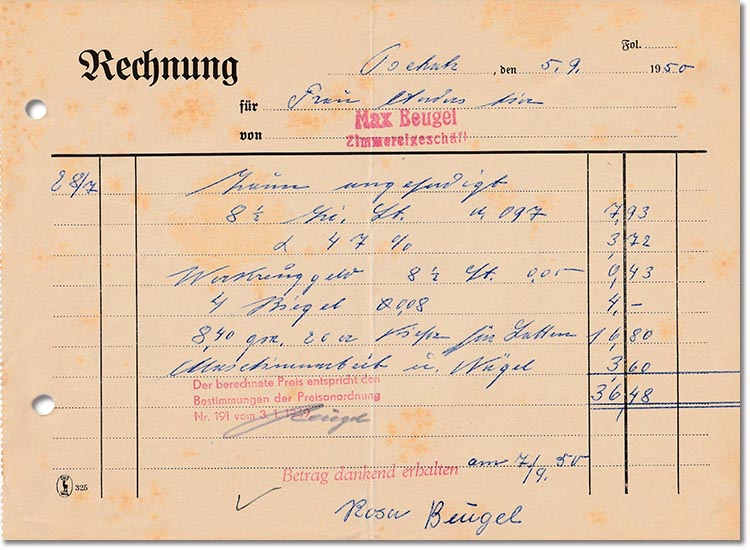 Fol.
Rechnung
, den 5. 9. 1950
für Frau
von Max Beugel
Zimmereigeschäft
28/7 Zaun angefertigt
8 ½ St. a, 097 7,93
47 % 3,72
Werkzeuggeld 8 ½ St. 0,05 0,43
4 Riegel 4,–
8,40 qm. für Latten 16,80
Maschinenarbeit u. Nägel 3,60
36,48
Der berechnete Preis entspricht den
Bestimmungen der Preisanordnung
Nr. 191 vom 3.
Beugel
Betrag dankend erhalten am 7/9. 50
325
Rosa Beugel